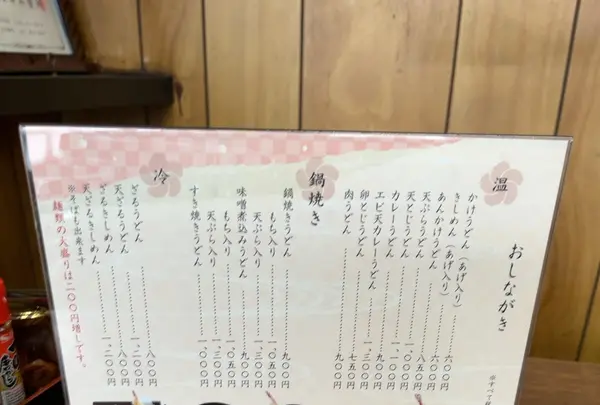 おしながき
温
かけうどん(あげ入り)………六〇〇円
きしめん(あげ入り)………六〇〇円
あんかけうどん………六〇〇円
天ぷらうどん………八五〇円
天とじうどん………九〇〇円
カレーうどん………一、〇〇〇円
エビ天カレーうどん………一、三〇〇円
卵とじうどん………七五〇円
肉うどん………九〇〇円
鍋焼き
鍋焼きうどん………九〇〇円
もち入り………一、〇五〇円
天ぷら入り………一、三〇〇円
味噌煮込みうどん………九〇〇円
もち入り………一、〇五〇円
天ぷら入り………一、三〇〇円
すき焼きうどん………一、〇〇〇円
冷
ざるうどん………八〇〇円
天ざるうどん………一、二〇〇円
ざるきしめん………八〇〇円
天ざるきしめん………一、二〇〇円
※そばも出来ます
麺類の大盛りは二〇〇円増しです。
※すべて